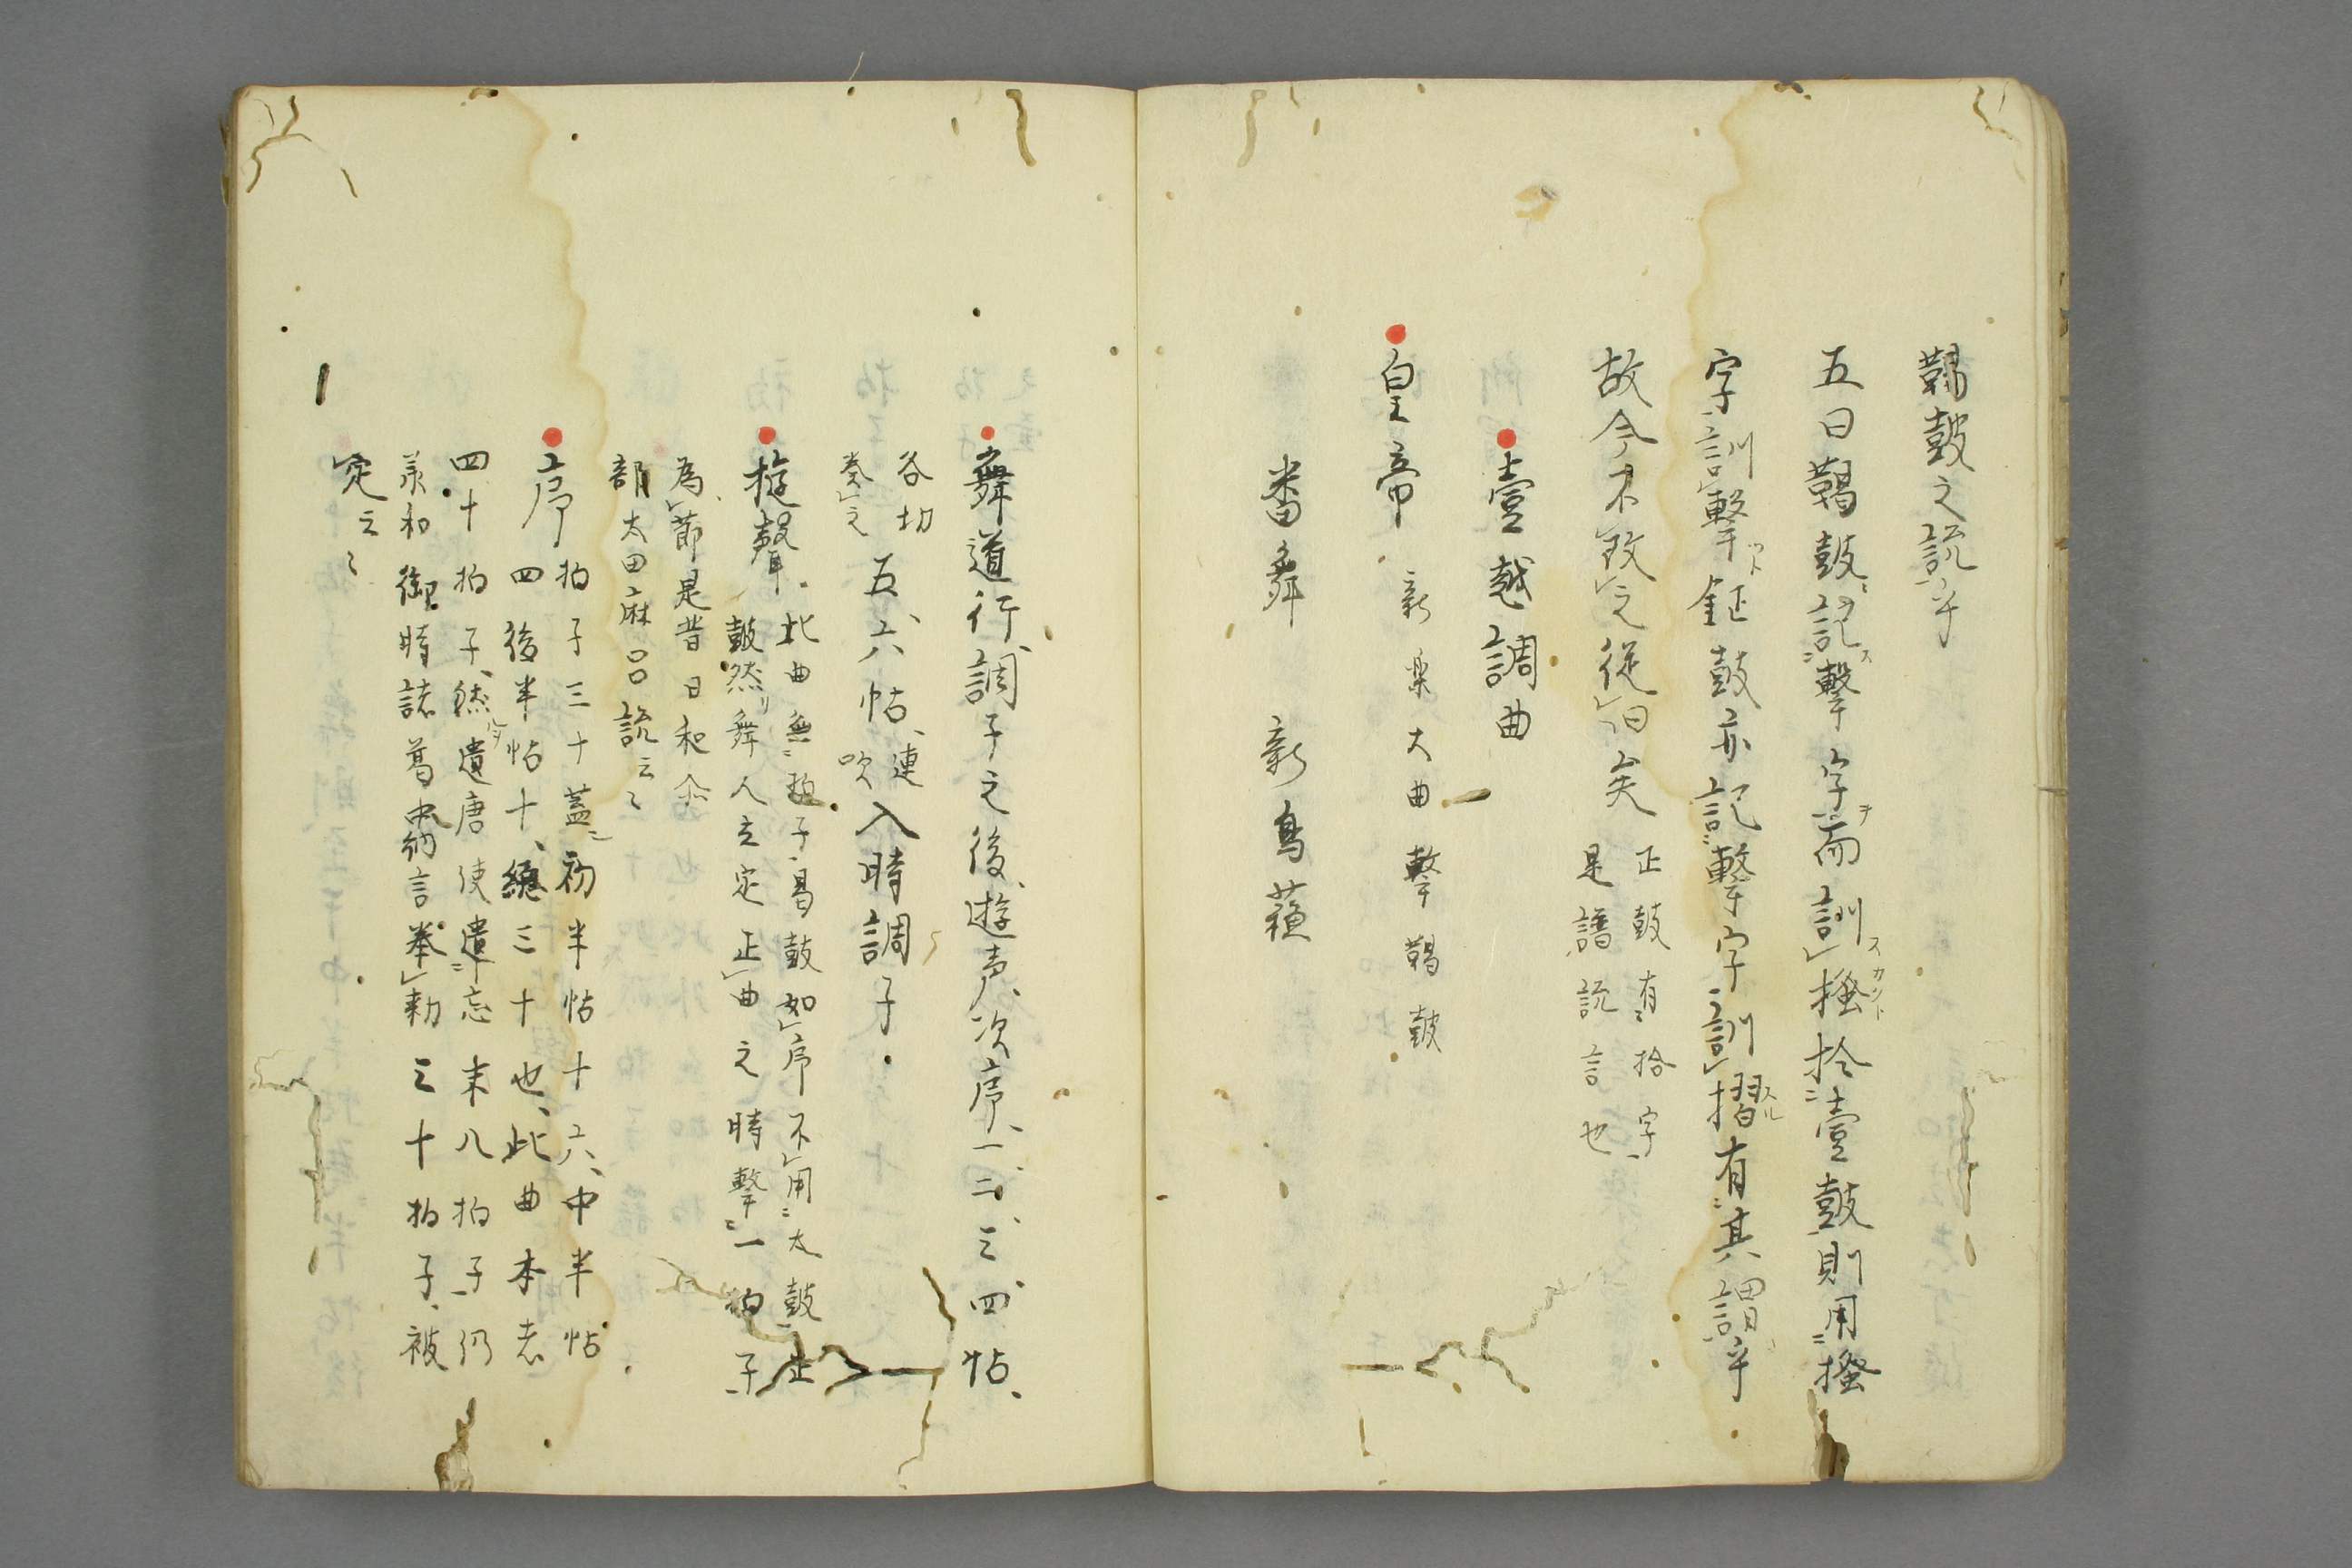 鞨鼓之説乎
五曰鞨鼓記撃字而訓搔拴壹鼓則用搔
字訓撃鉦鼓亦記撃字訓摺有其謂乎
故今不改之従旧矣 正鼓有拾字
是譜説言也
壹越調曲
皇帝 新楽大曲撃鞨鼓
番舞 新鳥蘓
舞道行調子之後遊声次序一二三四帖
各切
奏之 五六帖 連
吹 入時調子
遊聲 此曲無拍子曷鼓如序不用太鼓正
鼓然舞人立定正曲之時撃一拍子
為節是昔日和尒
部太田麻呂説云々
序 拍子三十蓋初半帖十六中半帖
四後半帖十総三十也此曲本者
四十拍子然遣唐使遺忘末八拍子仍
承和御時諸葛中納言奉勅三十拍子被
定云々